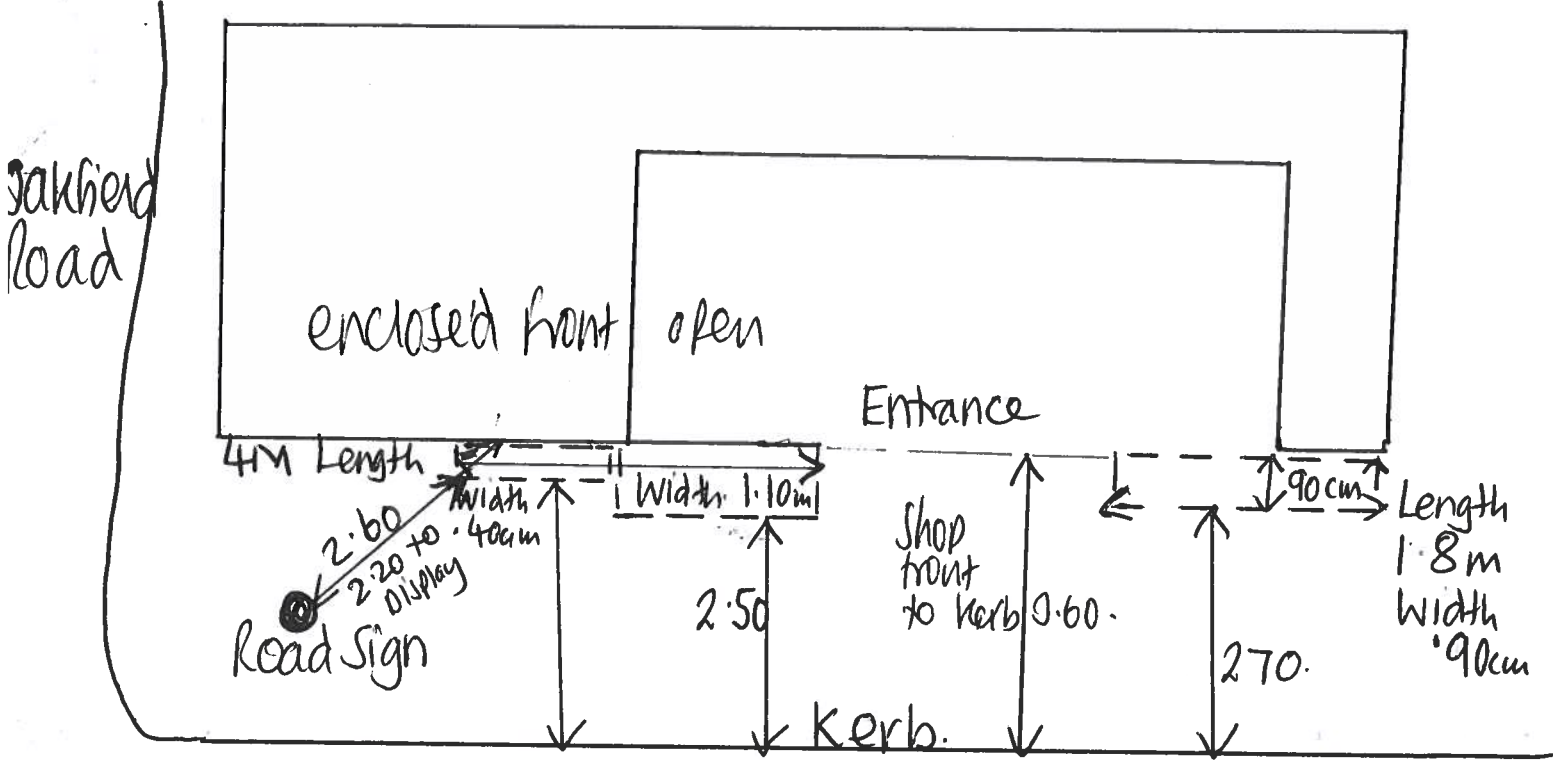 oakfield
Road
enclosed front
open
Entrance
4M Length
Width
.40cm
Width 1.10m
90cm
2.60
2.20 to
Display
Road Sign
2.50
Shop
front
to Kerb 3.60.
270.
Length
1.8m
Width
.90cm
Kerb.